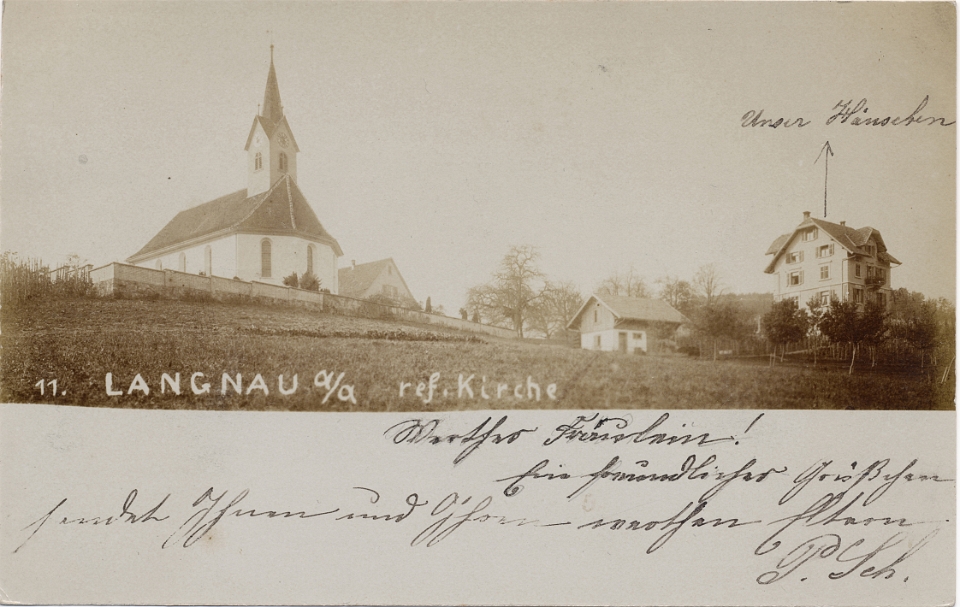 Unser Häuschen
11. LANGNAU a/A ref. Kirche
Werthes Fräulein!
Ein freundliches Grüßchen
sendet Ihnen und Ihren werthen Eltern
P. Sch.